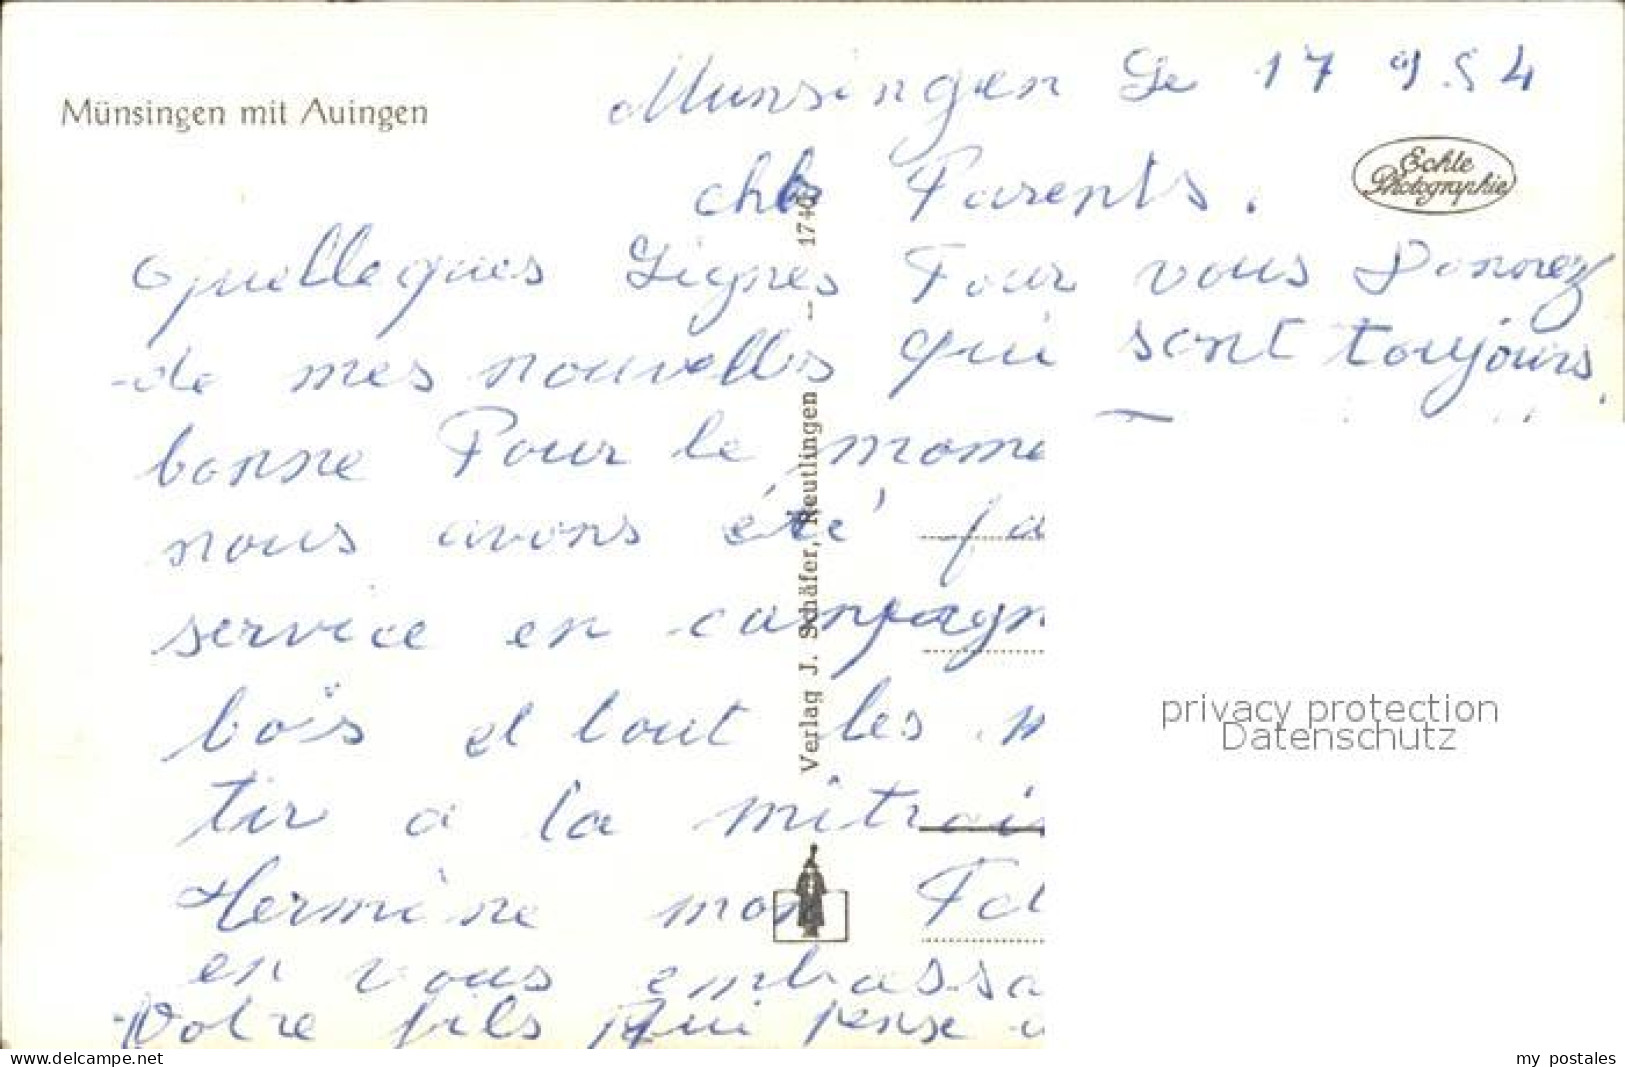 Münsingen mit Auingen
Munsingen Le 17 9 54
Echte
Photographie
chers Parents.
Quelleques Lignes Pour vous Donnez
de mes nouvelles qui sont toujours
bonne Pour le mome
nous avons été fa
service en campagn
bois et tout les
tir a la mitrai
Hermine mon
en vous embrassa
Votre fils qui pense a
Verlag J. Schäfer, Reutlingen — 1740
privacy protection
Datenschutz
www.delcampe.net
my postales